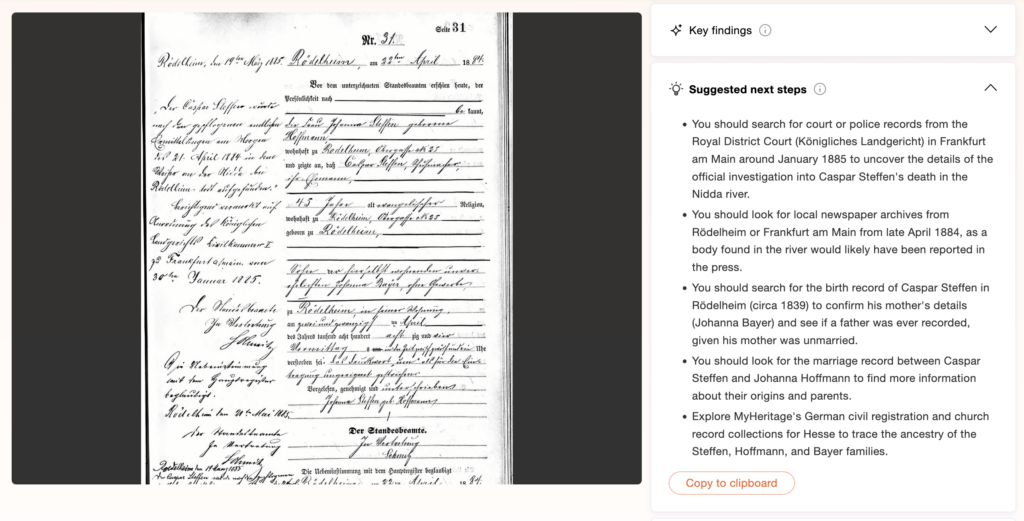 Seite 31
Nr. 31.
Rödelheim, den 19ten März 1885.
Rödelheim, am 22ten April 1884.
Vor dem unterzeichneten Standesbeamten erschien heute, der
Persönlichkeit nach
kannt,
die Frau Johanna Steffen geborene
Hoffmann
wohnhaft zu Rödelheim, Obergasse No 25
und zeigte an, daß Caspar Steffen,
ihr Ehemann,
45 Jahre alt evangelischer Religion,
wohnhaft zu Rödelheim, Obergasse No 25
geboren zu Rödelheim,
Sohn
Johanna
zu Rödelheim, in seiner Wohnung,
am April
des Jahres tausend acht hundert acht zig und vier
Vormittags Uhr
verstorben sei.
Vorgelesen, genehmigt und unterschrieben
Johanna Steffen geb. Hoffmann
Der Standesbeamte.
In Vertretung
Schmitz
Die Uebereinstimmung mit dem Hauptregister beglaubigt
Rödelheim am 22ten April 1884.
Der Caspar Steffen wurde
nach den gepflogenen amtlichen
Ermittelungen am Morgen
des 21. April 1884 in dem
Wasser an der Nidda bei
Rödelheim todt aufgefunden."
auf
Anordnung des Königlichen
Landgerichts Civilkammer I
zu Frankfurt a/main vom
30ten Januar 1885.
Der Standesbeamte
In Vertretung
Schmitz
Uebereinstimmung
mit dem Hauptregister
beglaubigt.
Rödelheim den Mai 1885.
Der Standesbeamte
In Vertretung
Schmitz
Rödelheim den 19 März 1885
Der Caspar Steffen
Key findings
Suggested next steps
• You should search for court or police records from the
Royal District Court (Königliches Landgericht) in Frankfurt
am Main around January 1885 to uncover the details of the
official investigation into Caspar Steffen's death in the
Nidda river.
• You should look for local newspaper archives from
Rödelheim or Frankfurt am Main from late April 1884, as a
body found in the river would likely have been reported in
the press.
• You should search for the birth record of Caspar Steffen in
Rödelheim (circa 1839) to confirm his mother's details
(Johanna Bayer) and see if a father was ever recorded,
given his mother was unmarried.
• You should look for the marriage record between Caspar
Steffen and Johanna Hoffmann to find more information
about their origins and parents.
• Explore MyHeritage's German civil registration and church
record collections for Hesse to trace the ancestry of the
Steffen, Hoffmann, and Bayer families.
Copy to clipboard